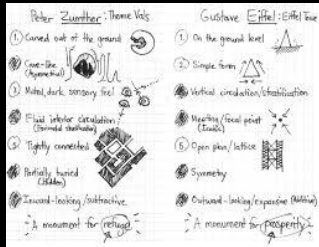 Peter Zumthor: Therme Vals
1. Carved out of the ground
Cave-like
(Asymmetrical)
3. Moted, dark, sensory feel
Fluid interior circulation
(Horizontal stratification)
5. Tightly connected
Partially buried
(Hidden)
Inward-looking/subtractive
A monument for refuge
Gustave Eiffel: Eiffel Tower
1. On the ground level
2. Simple form
Vertical circulation/stratification
Meeting/focal point
(Iconic)
5. Open plan/lattice
Symmetry
Outward-looking/expansive (Additive)
A monument for prosperity